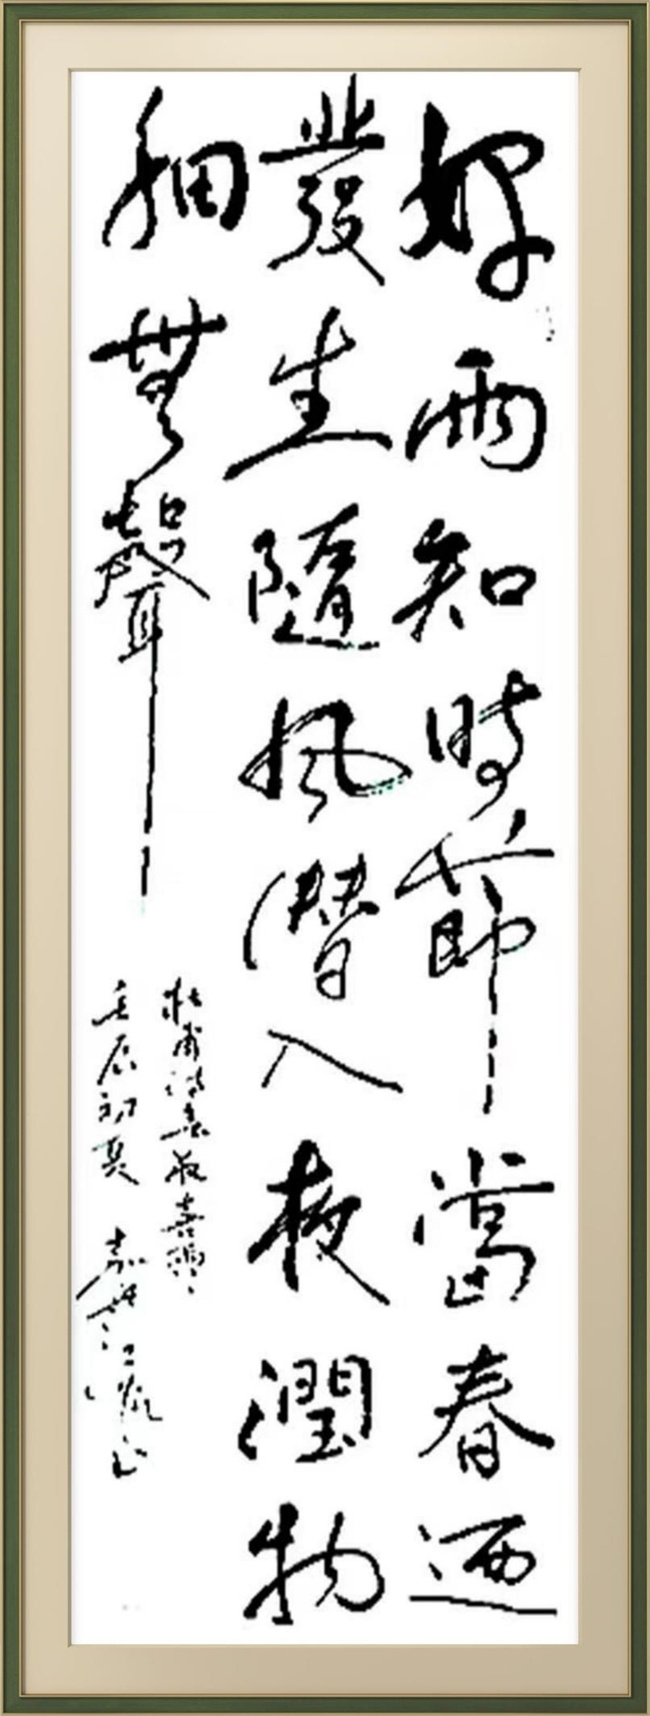 好雨知時節當春迺
發生隨風潛入夜潤物
細無聲
杜甫詩春夜喜雨
壬辰初夏